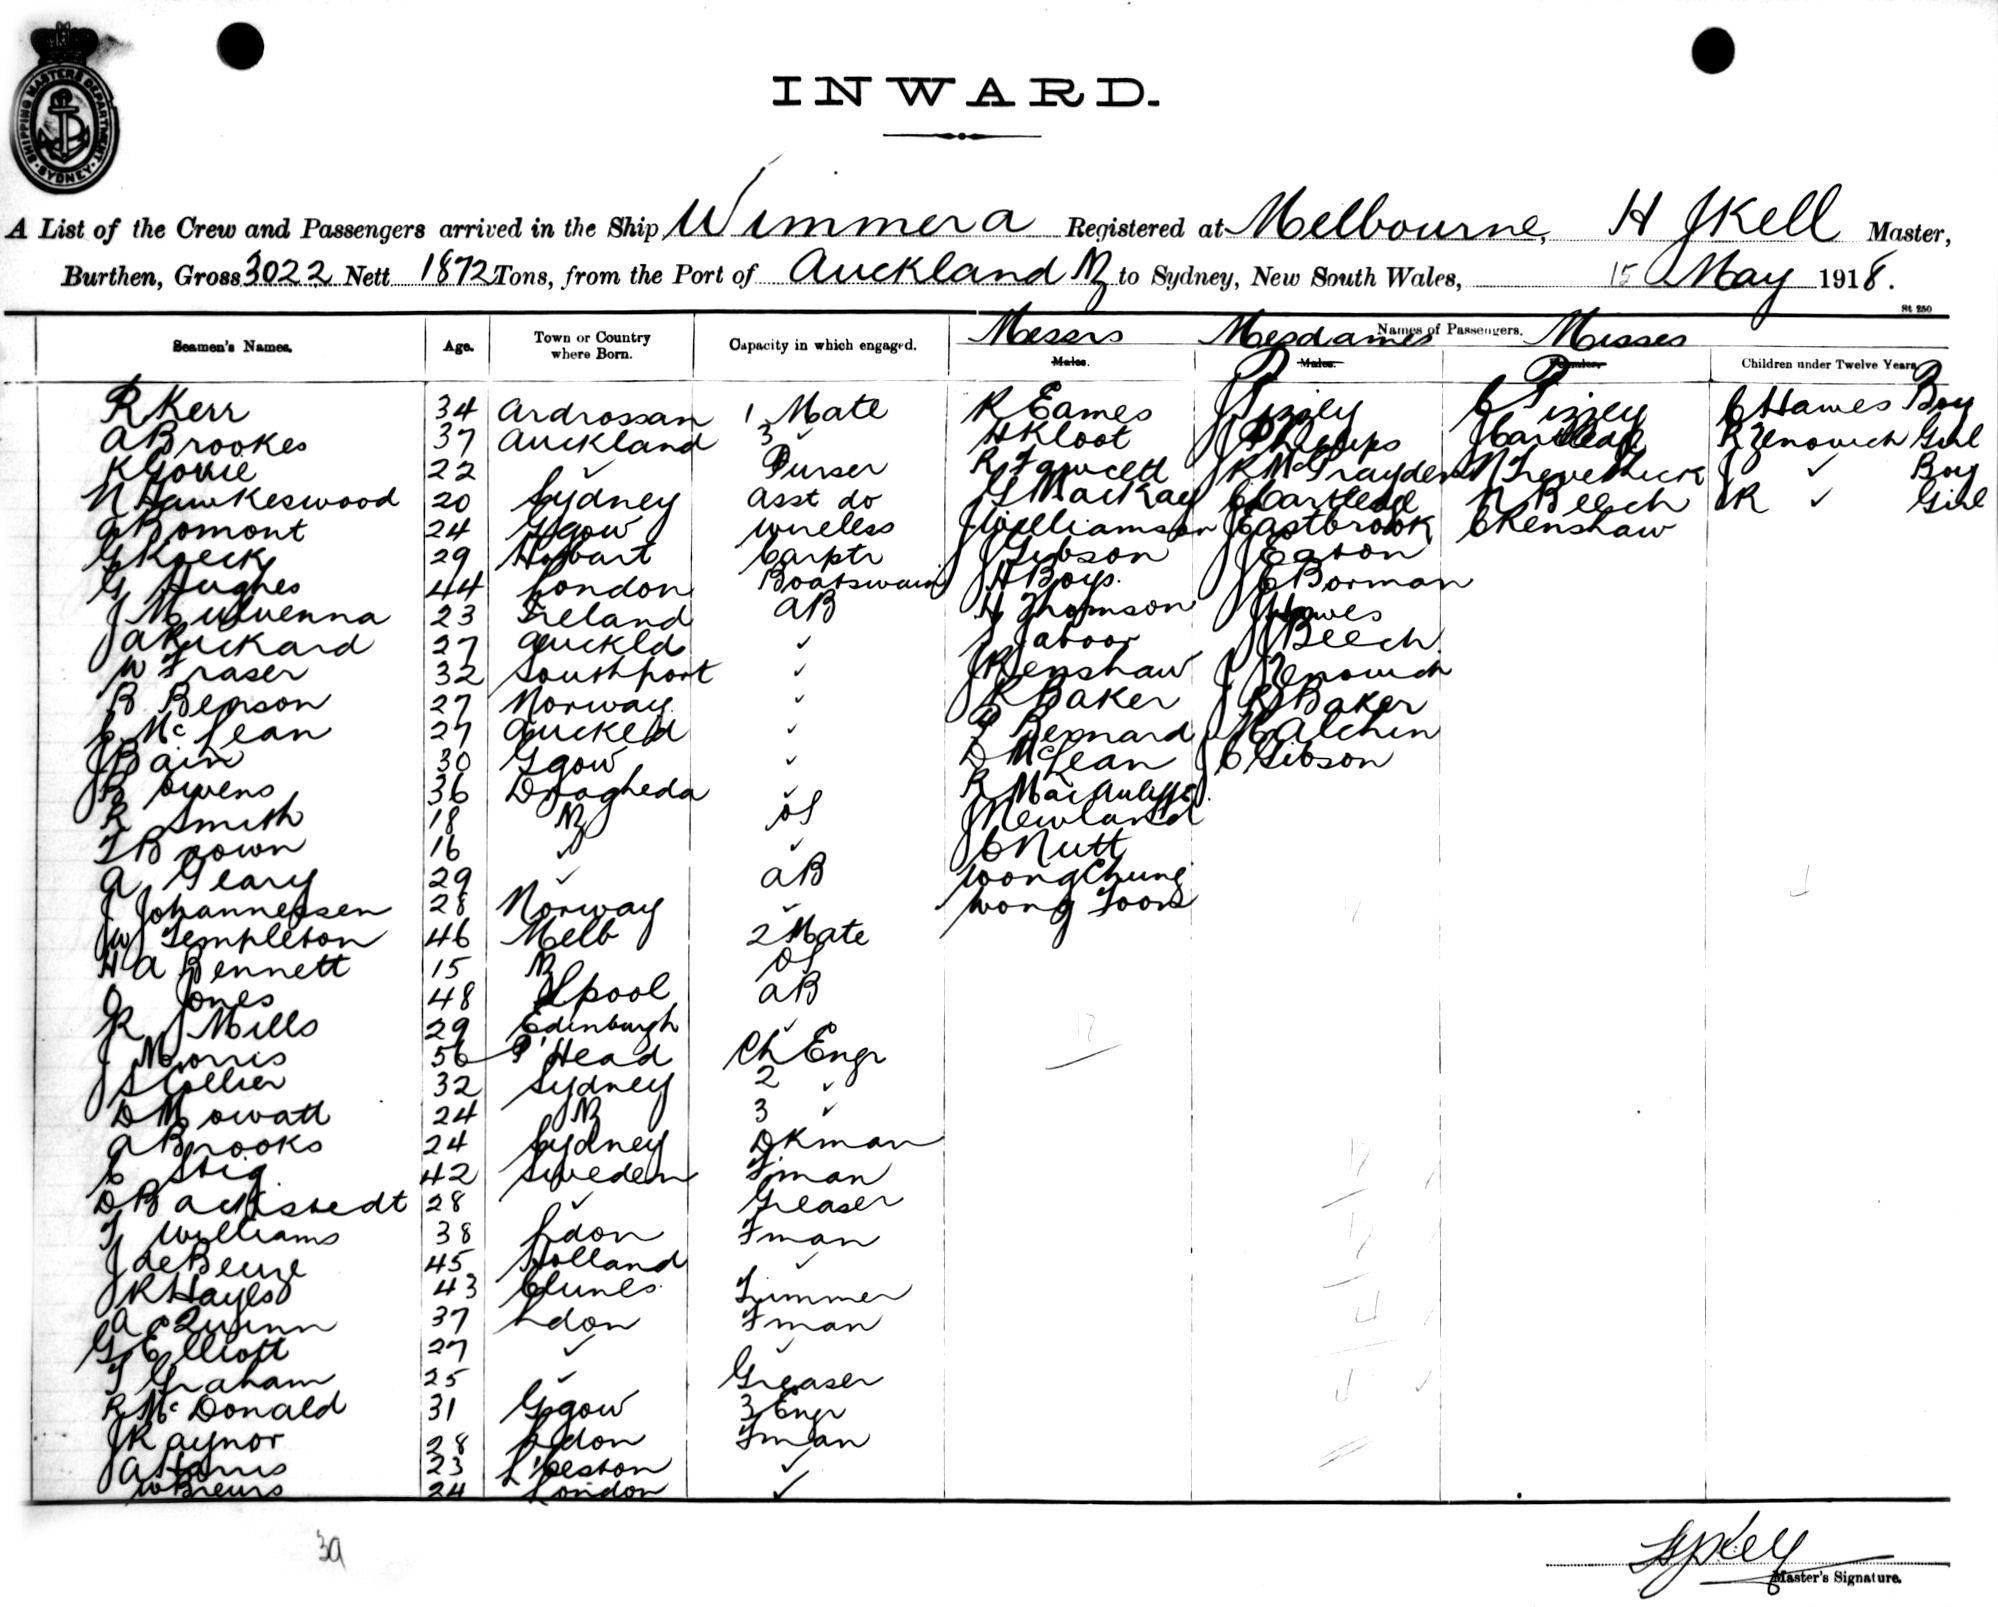 SHIPPING MASTERS DEPARTMENT SYDNEY
INWARD.
A List of the Crew and Passengers arrived in the Ship Wimmera Registered at Melbourne, H J Kell Master,
Burthen, Gross 3022 Nett 1872 Tons, from the Port of Auckland NZ to Sydney, New South Wales, 15 May 1918.
St 250
Seamen's Names. Age. Town or Country where Born. Capacity in which engaged. Names of Passengers.
Messrs Mesdames Misses
Males. Males. Females. Children under Twelve Years
R Kerr 34 Ardrossan 1 Mate R Eames J Pizzey C Pizzey C Hawes Boy
A Brookes 37 Auckland 3 ✓ H Kloot J Phelips J Cartledge R Zenovich Girl
K Gowie 22 ✓ Purser R Fawcett N Trevethick J ✓ Boy
N Hawkeswood 20 Sydney Asst do G MacKay C Cartledge N Beech R ✓ Girl
A Bomont 24 Ggow Wireless J Williamson J Eastbrook C Renshaw
G Koeck 29 Hobart Carptr J Gibson J Eason
G Hughes 44 London Boatswain H Boys. J C Borman
J Mulvenna 23 Ireland AB H Thomson J Hawes
J A Rickard 27 Auckld ✓ J Jaboor J Beech
W Fraser 32 Southport ✓ J Renshaw J Zenovich
B Benson 27 Norway ✓ R Baker J R Baker
C McLean 27 Auckld ✓ P Bernard M Alchin
J Bain 30 Ggow ✓ D McLean J C Gibson
J R Owens 36 Drogheda ✓ R MacAuliffe
R Smith 18 NZ OS J Newland
T Brown 16 ✓ ✓ J C Nutt
A Geary 29 ✓ AB Wong Chung
J Johannessen 28 Norway ✓ Wong Toon
W J Templeton 46 Melb 2 Mate
H A Bennett 15 NZ OS
J Jones 48 Lpool AB
R J Mills 29 Edinburgh ✓
J Morris 56 P'Head Ch Engr
J S Collier 32 Sydney 2 ✓
D Mowatt 24 NZ 3 ✓
A Brooks 24 Sydney DKman
C Stig 42 Sweden Fman
D Backstedt 28 ✓ Greaser
T Williams 38 Ldon Fman
J de Beuze 45 Holland ✓
J R Hayles 43 Clunes Trimmer
A Quinn 37 Ldon Fman
G Elliott 27 ✓ ✓
T Graham 25 ✓ Greaser
R McDonald 31 Ggow 3 Engr
J Raynor 28 Ldon Fman
J A Harris 23 L'ceston ✓
W Brews 24 London ✓
39
Master's Signature.